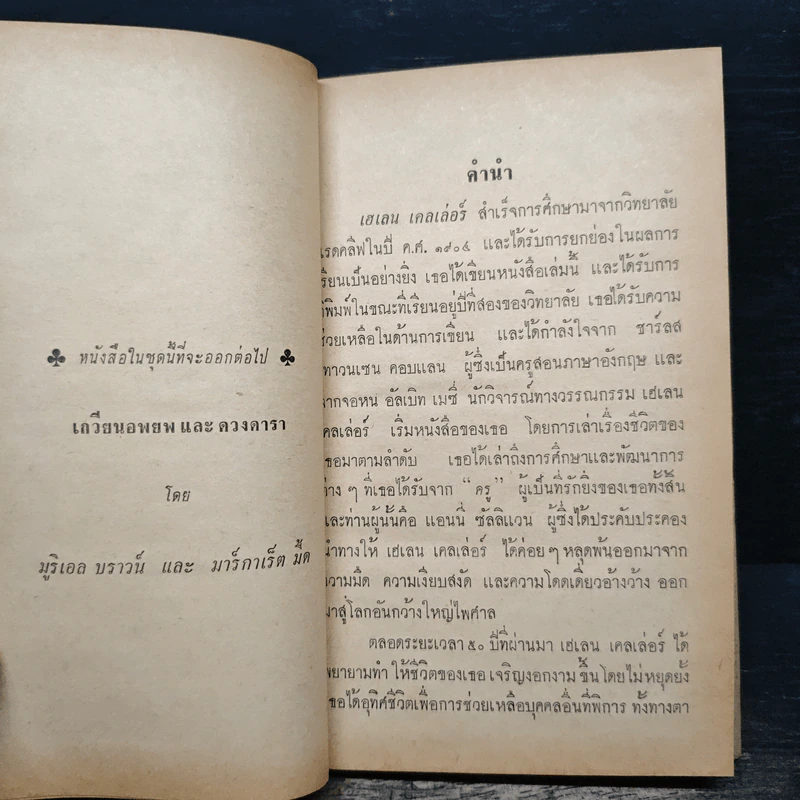 ♣ หนังสือในชุดนี้ที่จะออกต่อไป ♣
เกวียนอพยพ และ ดวงดารา
โดย
มูริเอล บราวน์ และ มาร์กาเร็ต มี้ด
คำนำ
เฮเลน เคลเล่อร์ สำเร็จการศึกษามาจากวิทยาลัย
เรดคลิฟในปี ค.ศ. ๑๙๐๔ และได้รับการยกย่องในผลการ
เรียนเป็นอย่างยิ่ง เธอได้เขียนหนังสือเล่มนี้ และได้รับการ
ตีพิมพ์ในขณะที่เรียนอยู่ปีที่สองของวิทยาลัย เธอได้รับความ
ช่วยเหลือในด้านการเขียน และได้กำลังใจจาก ชาร์ลส
ทาวนเซน คอบแลน ผู้ซึ่งเป็นครูสอนภาษาอังกฤษ และ
จากจอหน์ อัลเบิท เมซี่ นักวิจารณ์ทางวรรณกรรม เฮเลน
เคลเล่อร์ เริ่มหนังสือของเธอ โดยการเล่าเรื่องชีวิตของ
เธอมาตามลำดับ เธอได้เล่าถึงการศึกษาและพัฒนาการ
ต่าง ๆ ที่เธอได้รับจาก “ครู” ผู้เป็นที่รักยิ่งของเธอทั้งสิ้น
และท่านผู้นั้นคือ แอนนี่ ซัลลิแวน ผู้ซึ่งได้ประคับประคอง
นำทางให้ เฮเลน เคลเล่อร์ ได้ค่อย ๆ หลุดพ้นออกมาจาก
ความมืด ความเงียบสงัด และความโดดเดี่ยวอ้างว้าง ออก
มาสู่โลกอันกว้างใหญ่ไพศาล
ตลอดระยะเวลา ๕๐ ปีที่ผ่านมา เฮเลน เคลเล่อร์ ได้
พยายามทำ ให้ชีวิตของเธอ เจริญงอกงาม ขึ้น โดยไม่หยุดยั้ง
เธอได้อุทิศชีวิตเพื่อการช่วยเหลือบุคคลอื่นที่พิการ ทั้งทางตา